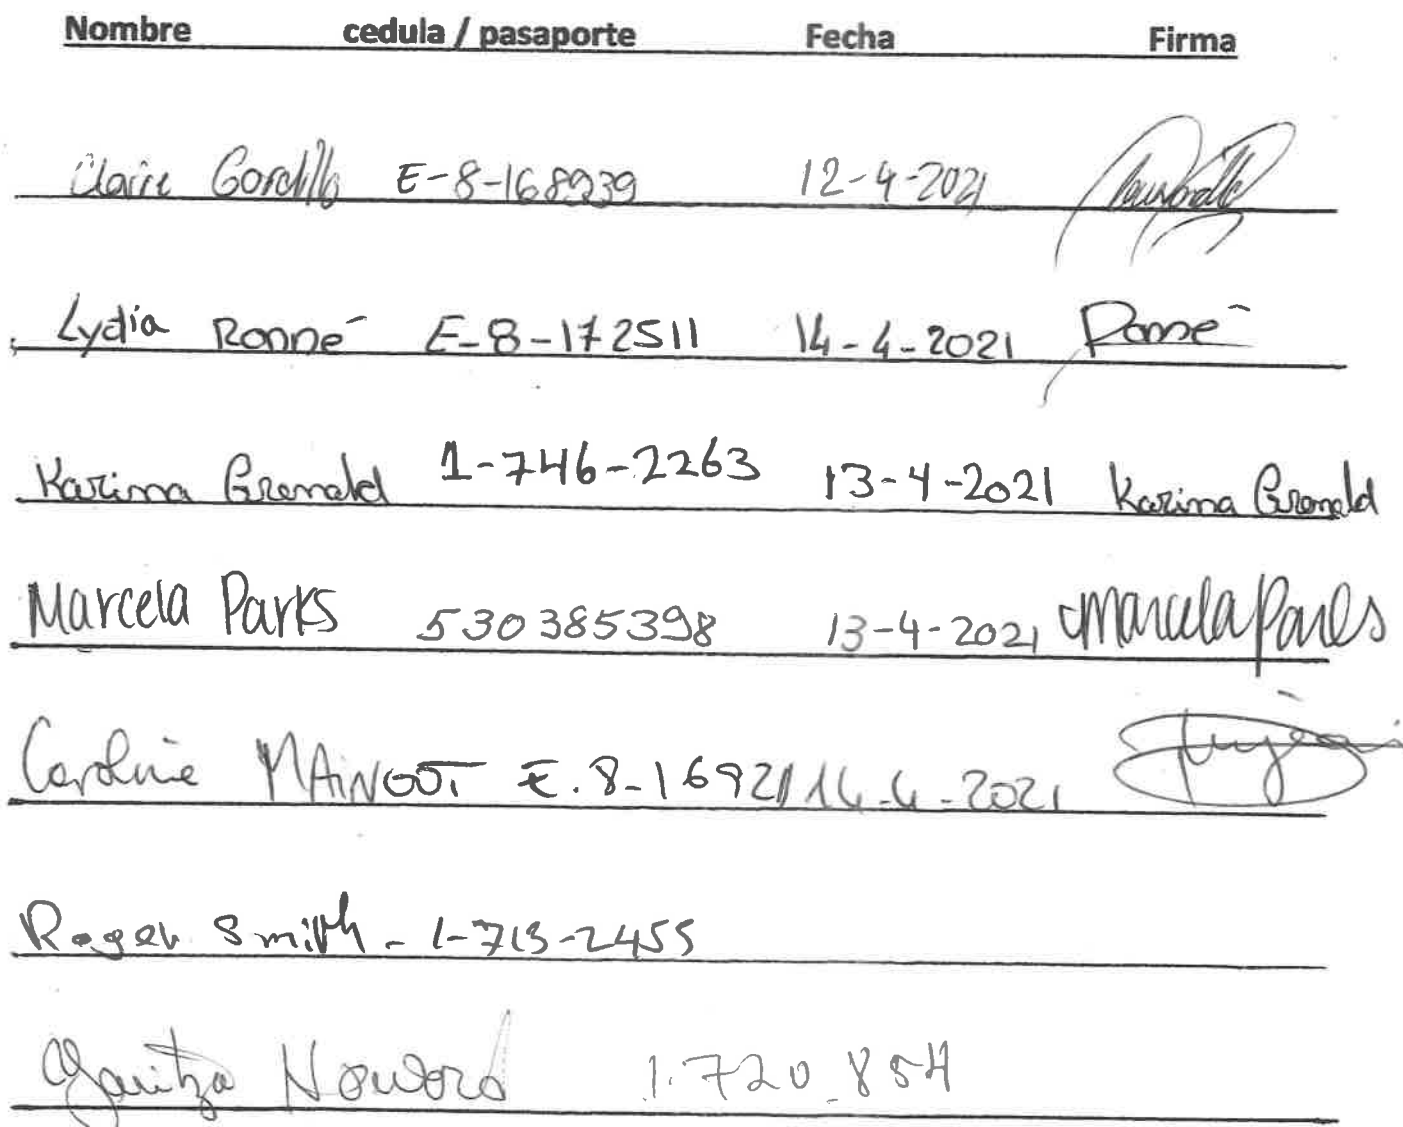 Nombre cedula / pasaporte Fecha Firma
Claire Gordillo E-8-168939 12-4-2021
Lydia Ronné E-8-172511 14-4-2021 Ronné
Karima Grenald 1-746-2263 13-4-2021 Karima Grenald
Marcela Parks 530385398 13-4-2021 Marcela Parks
Caroline MAiNGOT E.8-16921 14-4-2021
Roger Smith - 1-713-2455
1.720.854